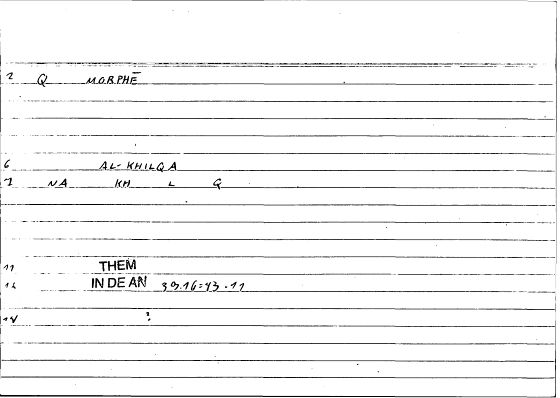 2 Q MORPHĒ
6 AL-KHILQA
7 NA KH L Q
11 THEM
12 IN DE AN 39.16=43.11
14 ?